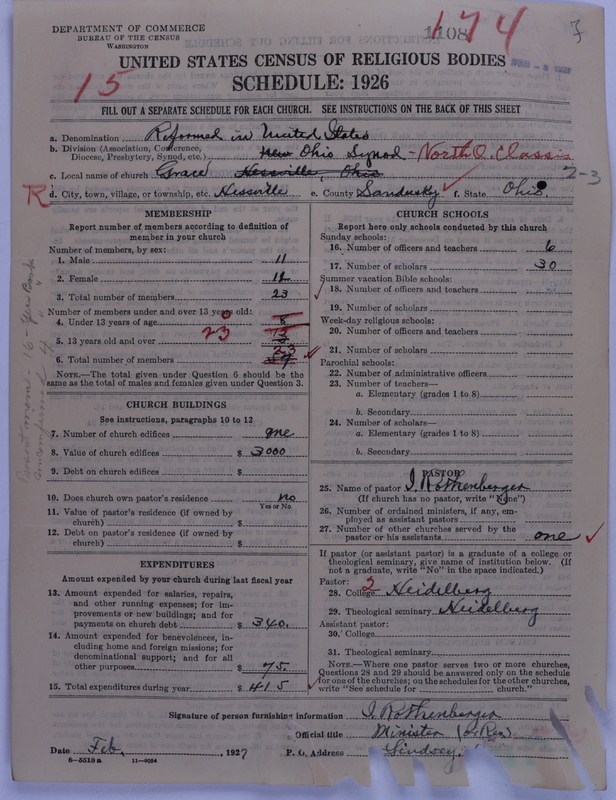 DEPARTMENT OF COMMERCE
BUREAU OF THE CENSUS
WASHINGTON
1108
174
7
15
UNITED STATES CENSUS OF RELIGIOUS BODIES
SCHEDULE: 1926
FILL OUT A SEPARATE SCHEDULE FOR EACH CHURCH. SEE INSTRUCTIONS ON THE BACK OF THIS SHEET
a. Denomination Reformed in United States
b. Division (Association, Conference, Diocese, Presbytery, Synod, etc.) New Ohio Synod - North O. Classis
c. Local name of church Grace Hessville, Ohio
2-3
R
d. City, town, village, or township, etc. Hessville e. County Sandusky f. State Ohio
MEMBERSHIP
Report number of members according to definition of member in your church
Number of members, by sex:
1. Male 11
2. Female 12
3. Total number of members 23
Number of members under and over 13 years old:
4. Under 13 years of age 0
5. 13 years old and over 23
6. Total number of members 23
NOTE.—The total given under Question 6 should be same as the total of males and females given under Question 3.
CHURCH BUILDINGS
See instructions, paragraphs 10 to 12
7. Number of church edifices one
8. Value of church edifices $ 3000
9. Debt on church edifices $
10. Does church own pastor's residence no
Yes or No
11. Value of pastor's residence (if owned by church) $
12. Debt on pastor's residence (if owned by church) $
EXPENDITURES
Amount expended by your church during last fiscal year
13. Amount expended for salaries, repairs, and other running expenses; for improvements or new buildings; and for payments on church debt $ 340.
14. Amount expended for benevolences, including home and foreign missions; for denominational support; and for all other purposes $ 75.
15. Total expenditures during year $ 415
CHURCH SCHOOLS
Report here only schools conducted by this church
Sunday schools:
16. Number of officers and teachers 6
17. Number of scholars 30
Summer vacation Bible schools:
18. Number of officers and teachers
19. Number of scholars
Week-day religious schools:
20. Number of officers and teachers
21. Number of scholars
Parochial schools:
22. Number of administrative officers
23. Number of teachers—
a. Elementary (grades 1 to 8)
b. Secondary
24. Number of scholars—
a. Elementary (grades 1 to 8)
b. Secondary
PASTOR
25. Name of pastor I. Rothenberger
(If church has no pastor, write "None")
26. Number of ordained ministers, if any, employed as assistant pastors
27. Number of other churches served by the pastor or his assistants one
If pastor (or assistant pastor) is a graduate of a college or theological seminary, give name of institution below. (If not a graduate, write "No" in the space indicated.)
Pastor:
2
28. College Heidelberg
29. Theological seminary Heidelberg
Assistant pastor:
30. College
31. Theological seminary
NOTE.—Where one pastor serves two or more churches, Questions 28 and 29 should be answered only on the schedule for one of the churches; on the schedules for the other churches, write "See schedule for church."
Signature of person furnishing information I. Rothenberger
Official title Minister (or Rev)
Date Feb, 1927 P. O. Address Lindsey,
8—5518 a 11—9064